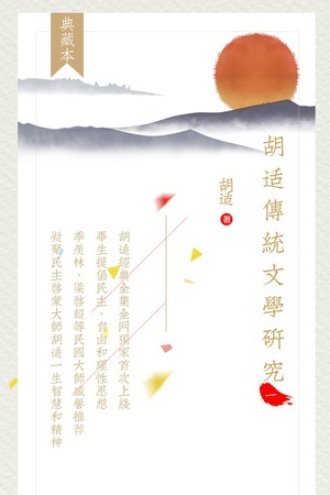 典藏本
胡适傳統文學研究
一
胡适
著
胡适經典全集全网獨家首次上綫
畢生提倡民主、自由和理性思想
季羨林、梁啓超等民國大師感譽推荐
凝聚民主啓蒙大師胡适一生智慧和精神